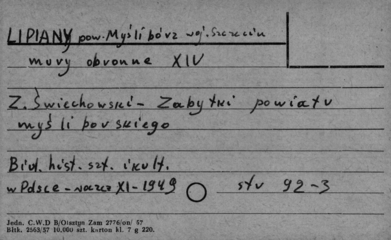 LIPIANY pow. Myślibórz woj. Szczecin
mury obronne XIV
Z. Świechowski - Zabytki powiatu
myśliborskiego
Biul. hist. szt. i kult.
w Polsce - XI - 1949 str 92-3
Jedn. C.W.D B/Olsztyn Zam 2776/on/ 57
Bltk. 2563/57 10.000 szt. karton kl. 7 g 220.